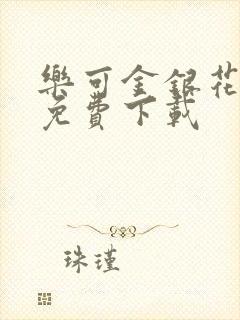 樂可金銀花
免費下載
珠瑾